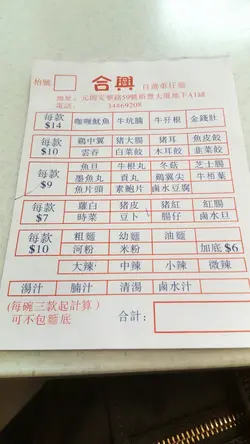 枱號 合興 自選車仔麵
地址：元朗安寧路59號裕豐大廈地下A1鋪
電話： 34869208
每款 $14 咖喱魷魚 牛坑腩 牛孖根 金錢肚
每款 $10 鷄中翼 豬大腸 豬耳 魚皮餃
雲吞 白菜餃 木耳餃 韭菜餃
每款 $9 魚旦 牛根丸 冬菇 芝士腸
墨魚丸 貢丸 鷄翼尖 牛栢葉
魚片頭 素鮑片 鹵水豆腐
每款 $7 蘿白 豬皮 豬紅 紅腸
時菜 豆卜 腸仔 鹵水旦
每款 $10 粗麵 幼麵 油麵
河粉 米粉 加底 $6
大辣 中辣 小辣 微辣
湯汁 腩汁 清湯 鹵水汁
(每碗三款起計算)
可不包麵底 合計：